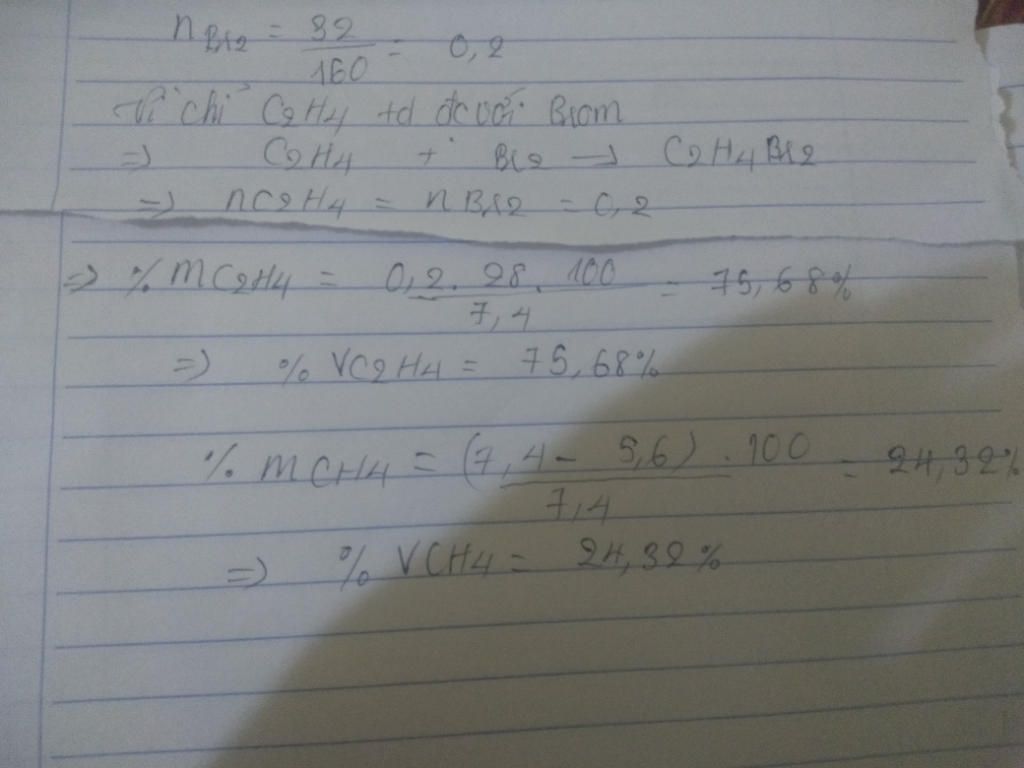 nBr2 = 32/160 = 0,2
Vì chỉ C2H4 td đc với Brom
=> C2H4 + Br2 -> C2H4Br2
=> nC2H4 = nBr2 = 0,2
=> % mC2H4 = 0,2 . 28 . 100/7,4 = 75,68%
=> % VC2H4 = 75,68%
% mCH4 = (7,4 - 5,6) . 100/7,4 = 24,32%
=> % VCH4 = 24,32%